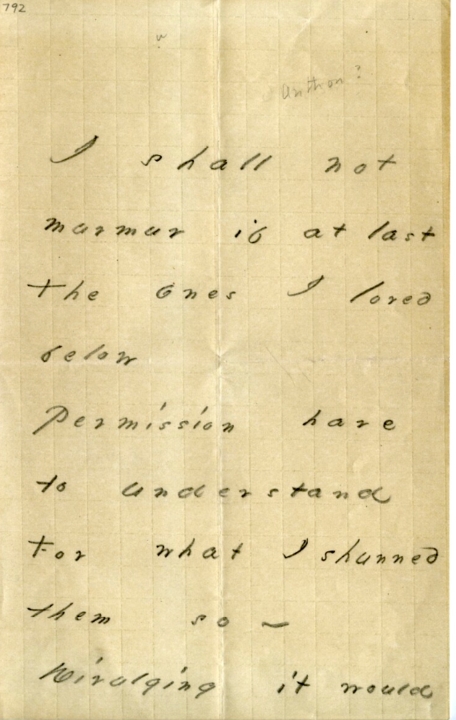 792
Author?
I shall not
murmur if at last
the ones I loved
below
Permission have
to understand
For what I shunned
them so –
Divulging it would